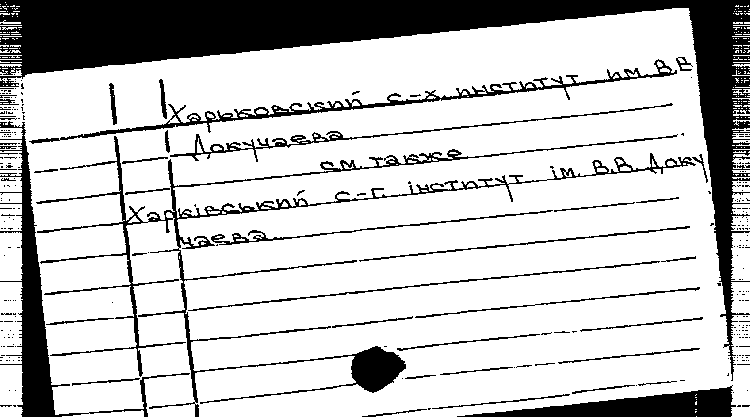 Харьковский с.-х. институт им. В.В
Докучаева
см. также
Харківський с.-г. інститут ім. В.В. Доку
чаева